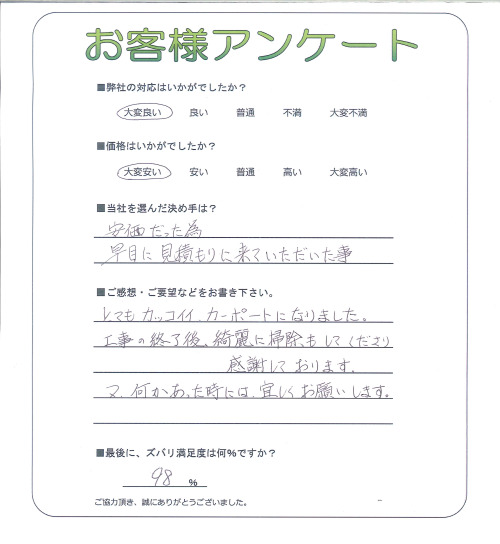 お客様アンケート
■弊社の対応はいかがでしたか?
大変良い 良い 普通 不満 大変不満
■価格はいかがでしたか?
大変安い 安い 普通 高い 大変高い
■当社を選んだ決め手は?
安価だった為
早目に見積もりに来ていただいた事
■ご感想・ご要望などをお書き下さい。
とてもカッコイイ カーポートになりました。
工事の終了後、綺麗に掃除もしてくださり
感謝しております。
又、何かあった時には、宜しくお願いします。
■最後に、ズバリ満足度は何%ですか?
98 %
ご協力頂き、誠にありがとうございました。